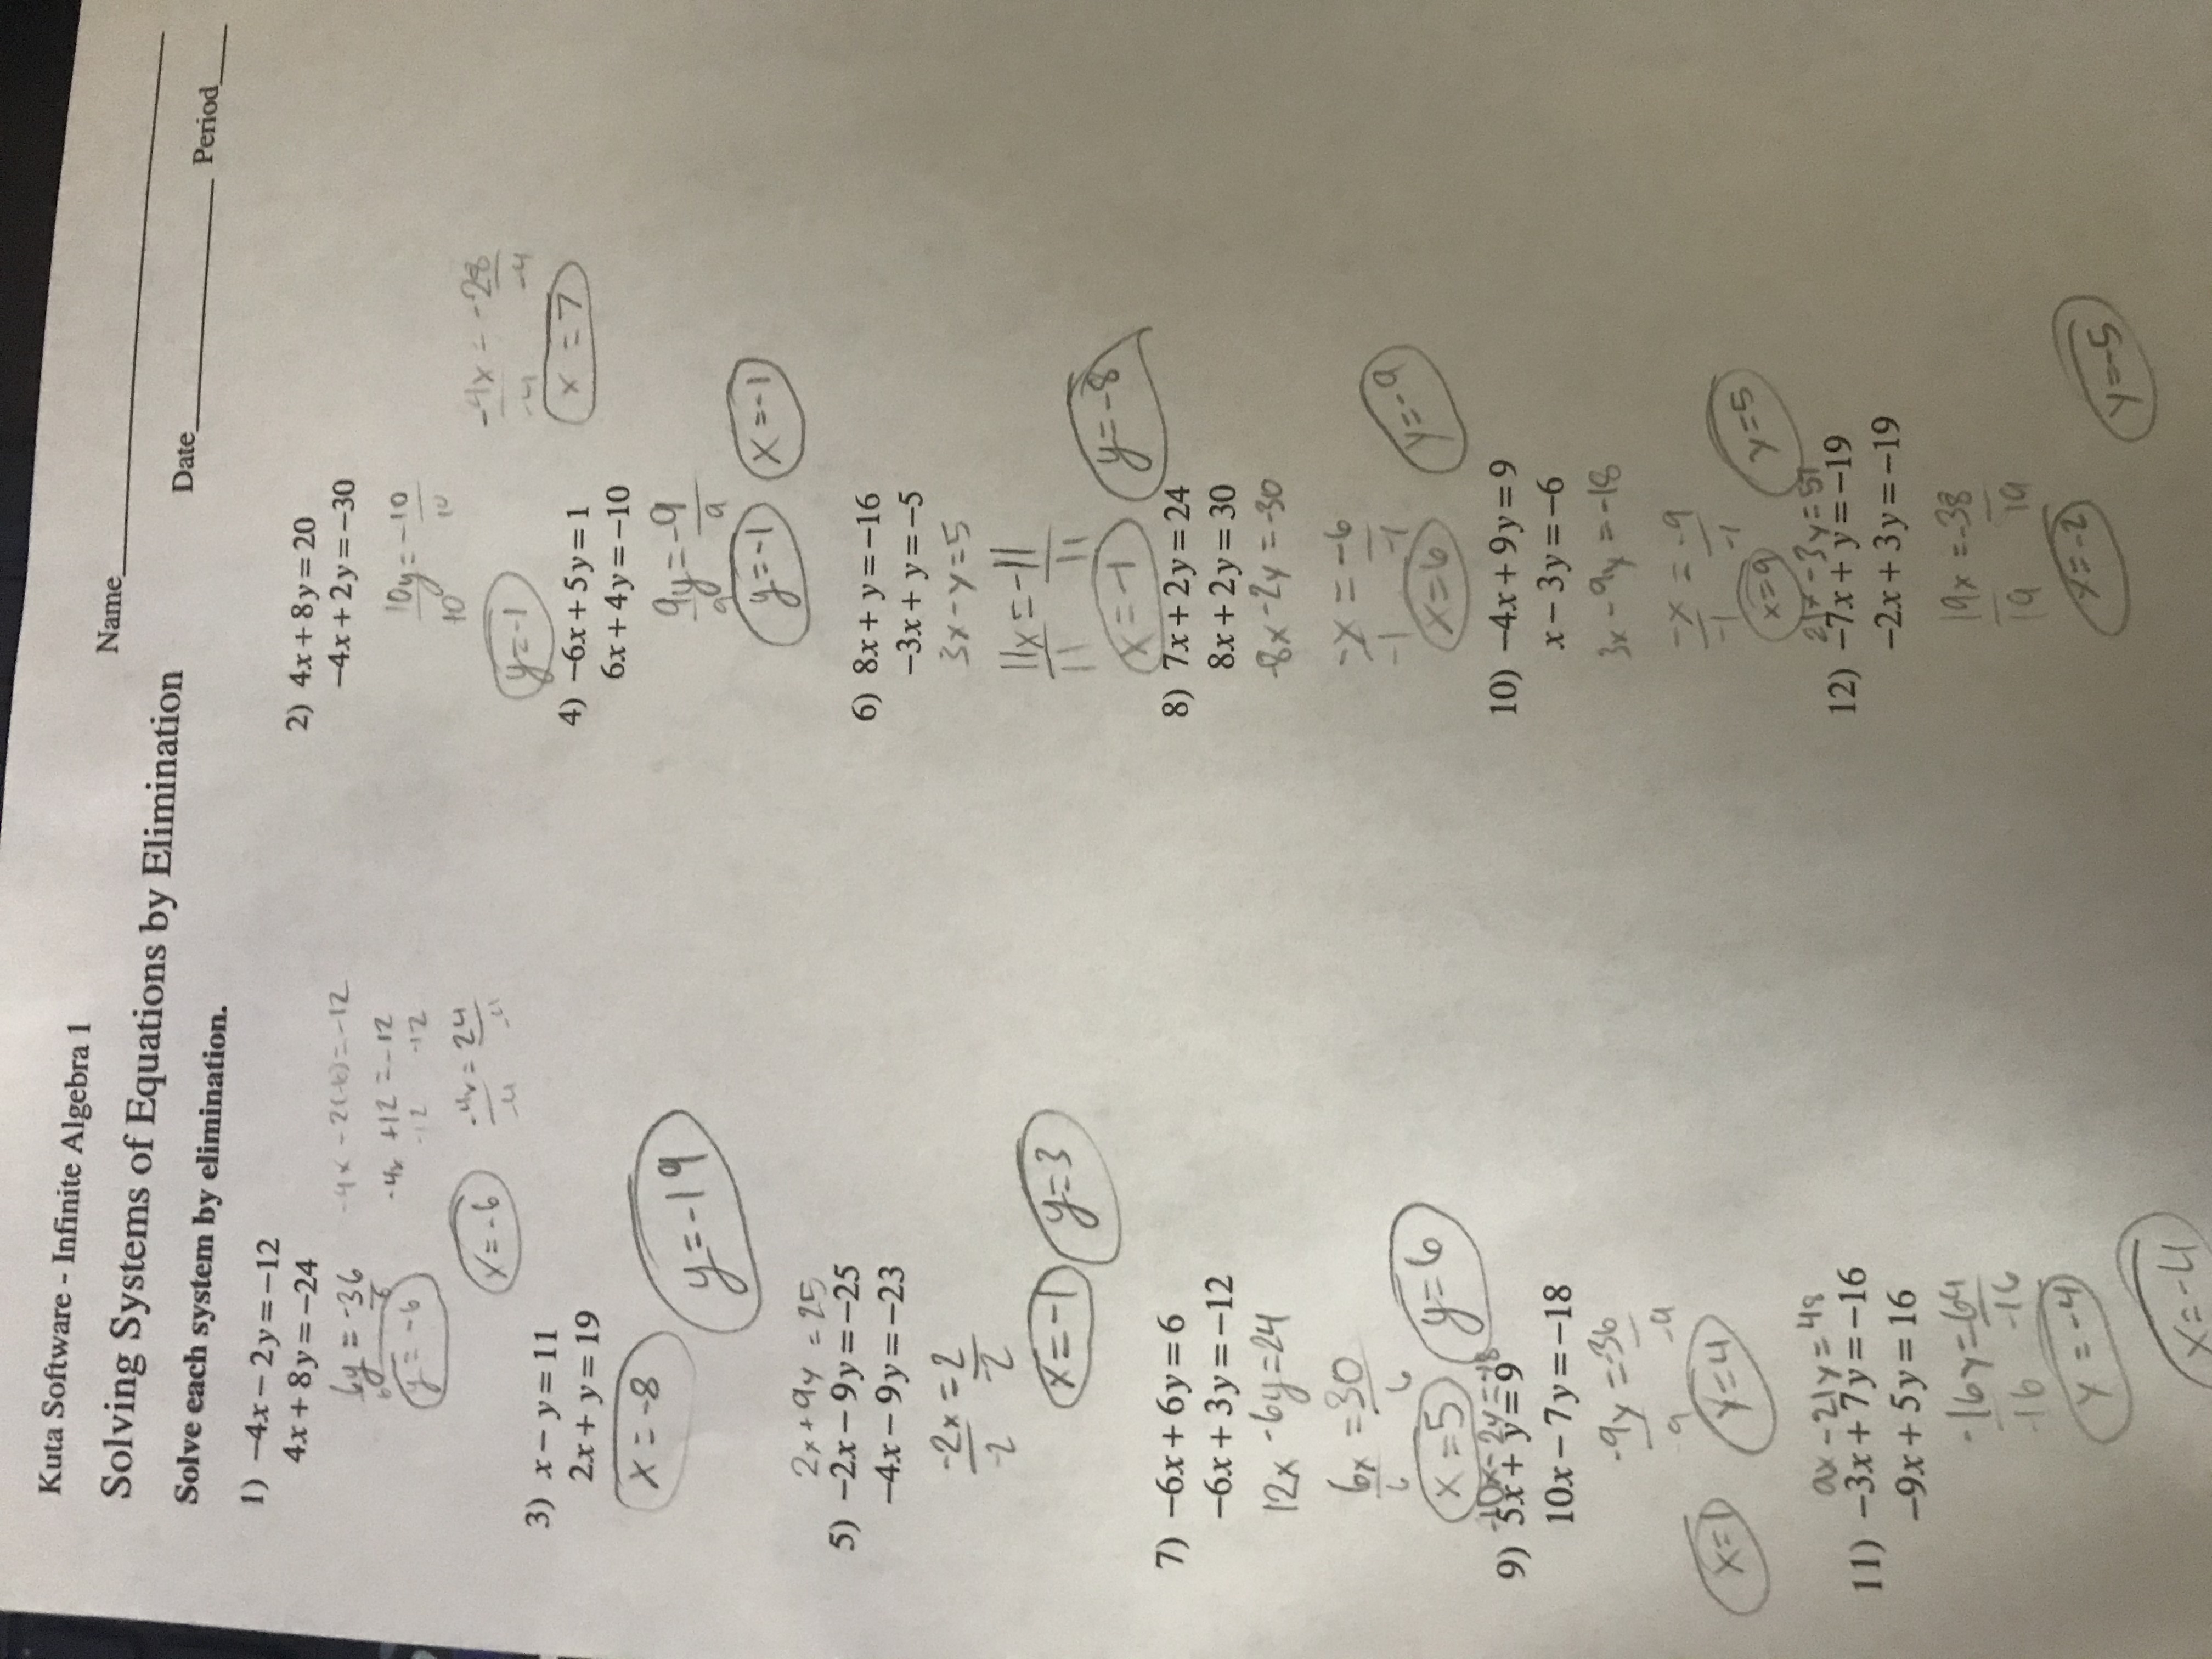 Kuta Software - Infinite Algebra 1
Name
Solving Systems of Equations by Elimination
Date Period
Solve each system by elimination.
1) −4x − 2y = −12
4x + 8y = −24
6y = -36
6 6
y = -6
-4x - 2(-6) = -12
-4x +12 = -12
-12 -12
-4x = 24
-4 -4
x = -6
2) 4x + 8y = 20
−4x + 2y = −30
10y = -10
10 10
y = -1
-4x = -28
-4 -4
x = 7
3) x − y = 11
2x + y = 19
x = -8
y = -19
4) −6x + 5y = 1
6x + 4y = −10
9y = -9
9 9
y = -1 x = -1
2x + 9y = 25
5) −2x − 9y = −25
−4x − 9y = −23
-2x = 2
-2 -2
x = -1 y = 3
6) 8x + y = −16
−3x + y = −5
3x - y = 5
11x = -11
11 11
x = -1 y = -8
7) −6x + 6y = 6
−6x + 3y = −12
12x - 6y = 24
6x = 30
6 6
x = 5 y = 6
8) 7x + 2y = 24
8x + 2y = 30
-8x - 2y = -30
-x = -6
-1 -1
x = 6 y = -9
-10x - 2y = -18
9) 5x + y = 9
10x − 7y = −18
-9y = -36
-9 -9
x = 1 y = 4
10) −4x + 9y = 9
x − 3y = −6
3x - 9y = -18
-x = -9
-1 -1
x = 9 y = 5
9x - 21y = 48
11) −3x + 7y = −16
−9x + 5y = 16
-16y = 64
-16 -16
y = -4
x = -4
21x - 3y = 57
12) −7x + y = −19
−2x + 3y = −19
19x = -38
19 19
x = -2 y = -5